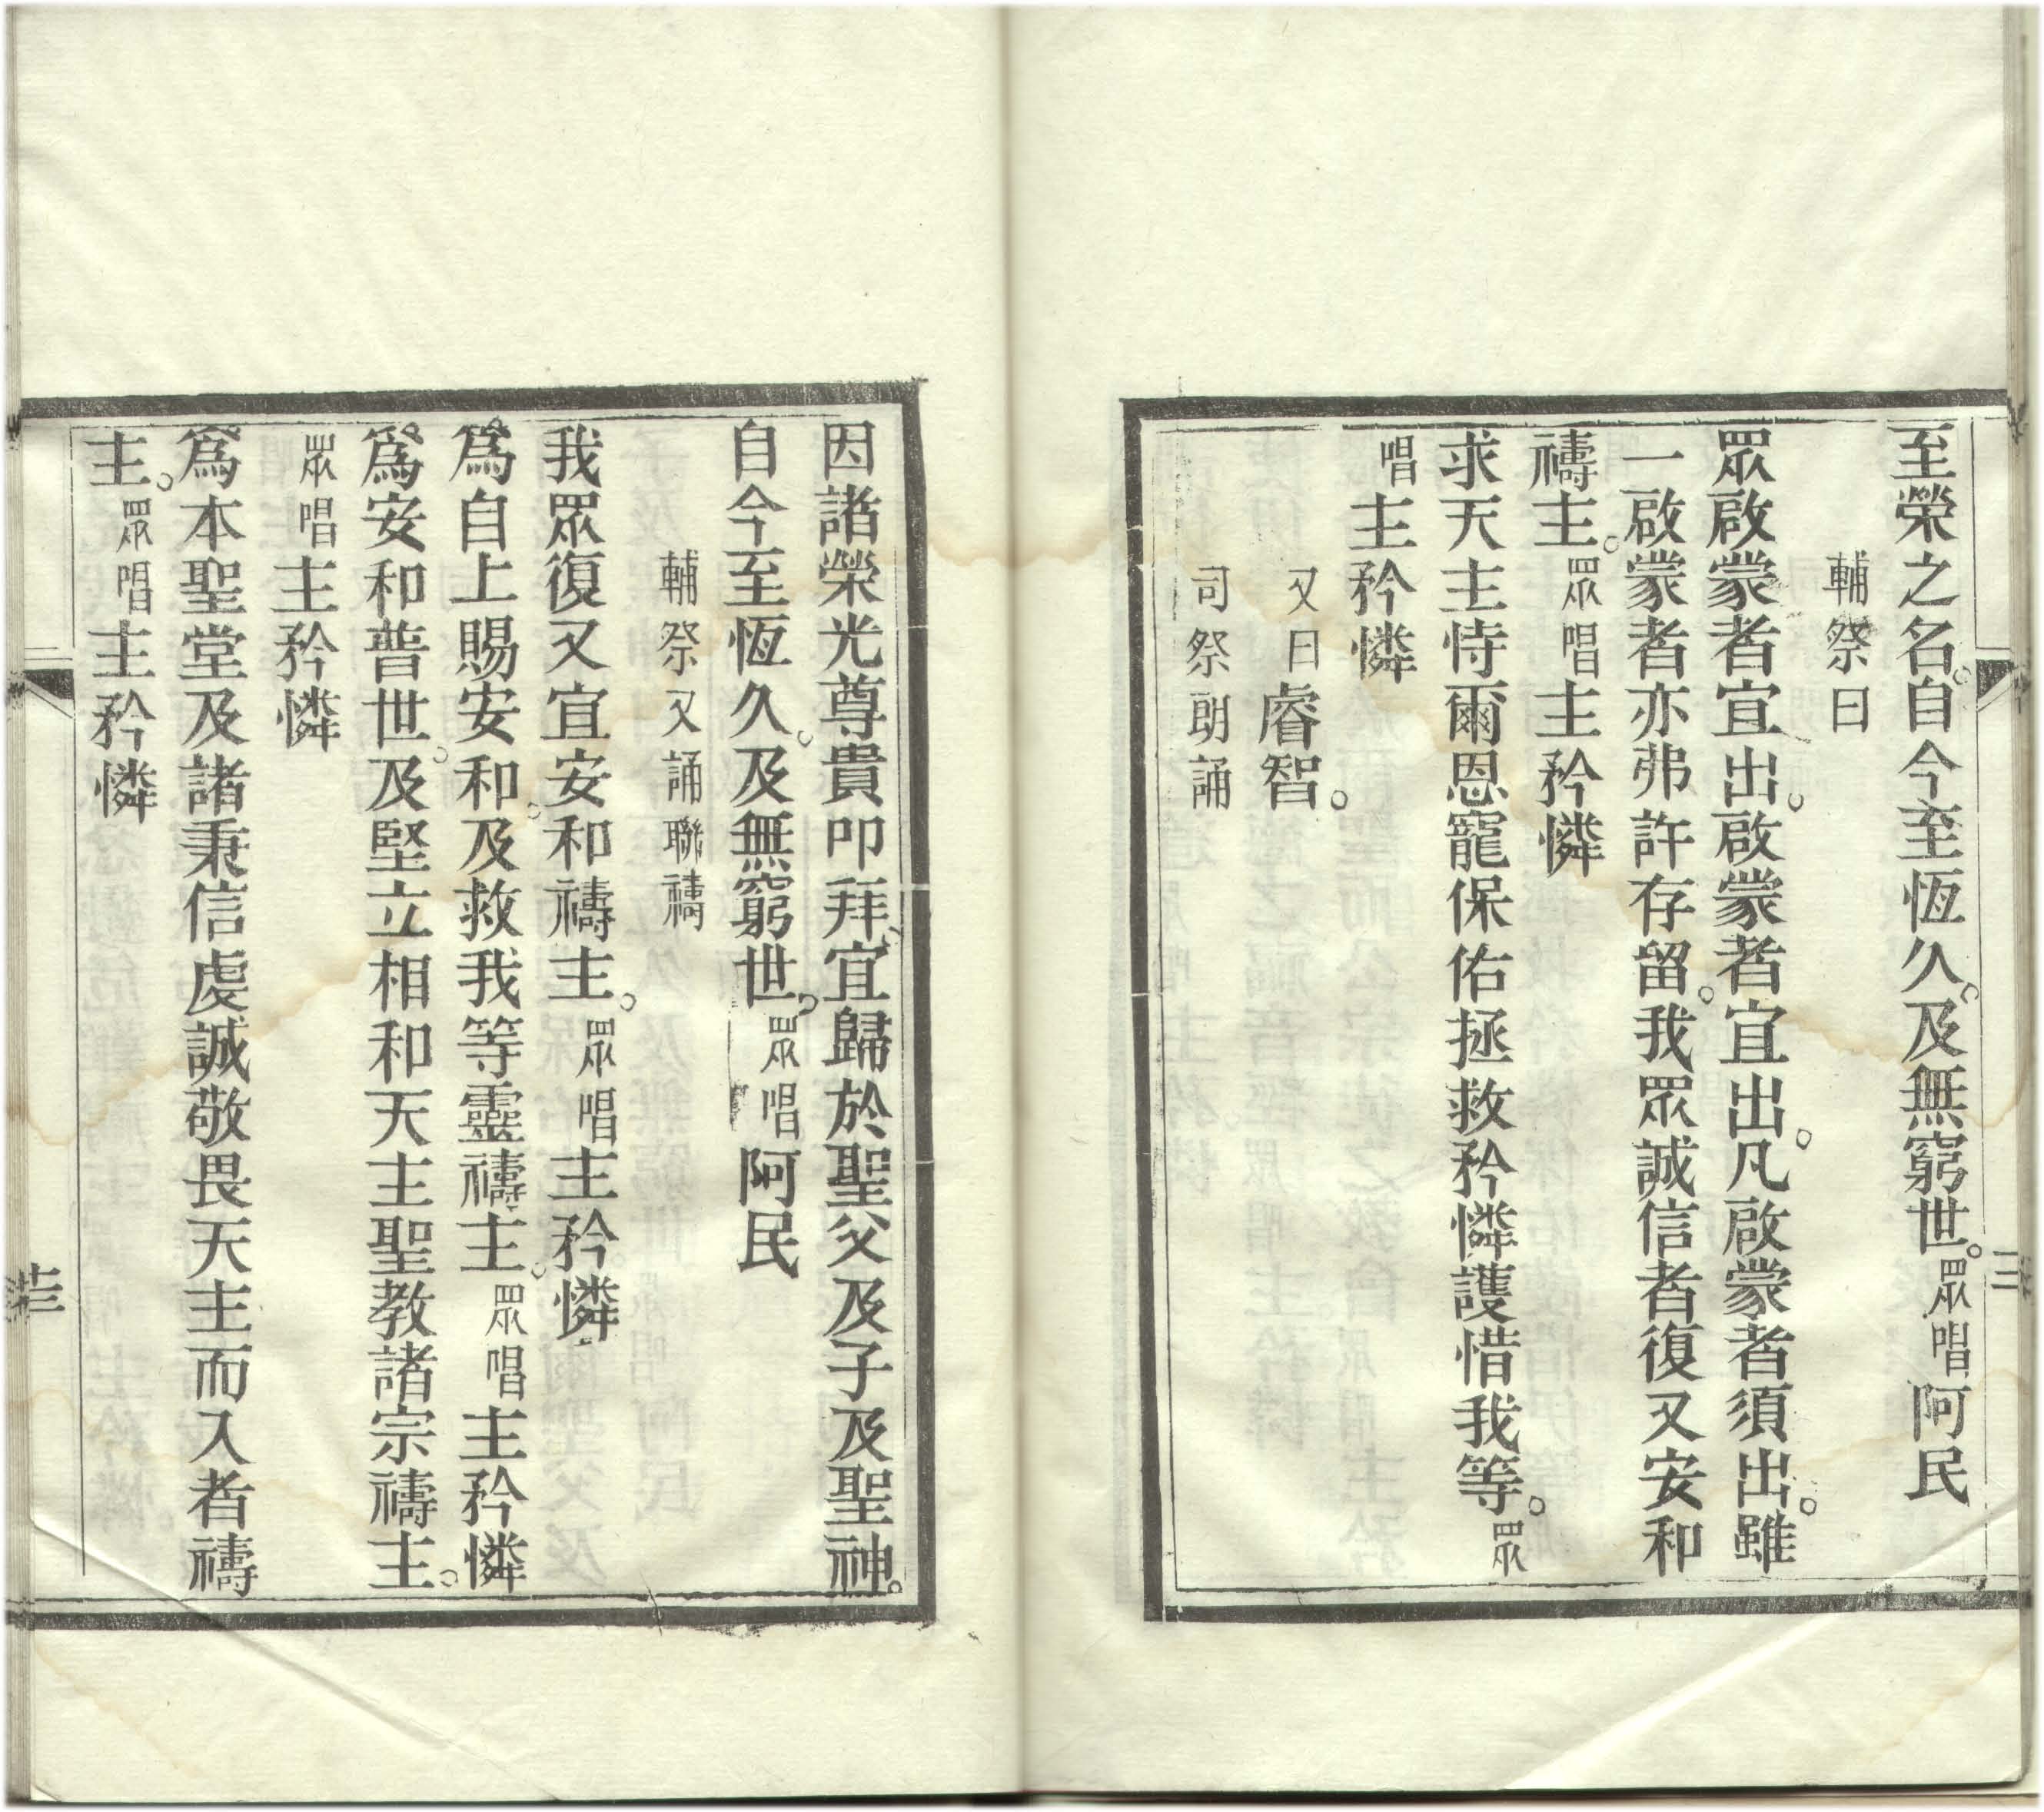 至榮之名。自今至恆久。及無窮世。眾唱阿民
輔祭曰
眾啟蒙者宜出。啟蒙者宜出。凡啟蒙者須出。雖
一啟蒙者亦弗許存留。我眾誠信者復又安和
禱主。眾唱主矜憐
求天主恃爾恩寵保佑拯救矜憐護惜我等。眾
唱主矜憐
又曰睿智。
司祭朗誦
因諸榮光尊貴叩拜、宜歸於聖父及子及聖神。
自今至恆久。及無窮世。眾唱阿民
輔祭又誦聯禱
我眾復又宜安和禱主。眾唱主矜憐
爲自上賜安和。及救我等靈禱主。眾唱主矜憐
爲安和普世。及堅立相和天主聖教諸宗禱主。
眾唱主矜憐
爲本聖堂及諸秉信虔誠敬畏天主而入者禱
主。眾唱主矜憐